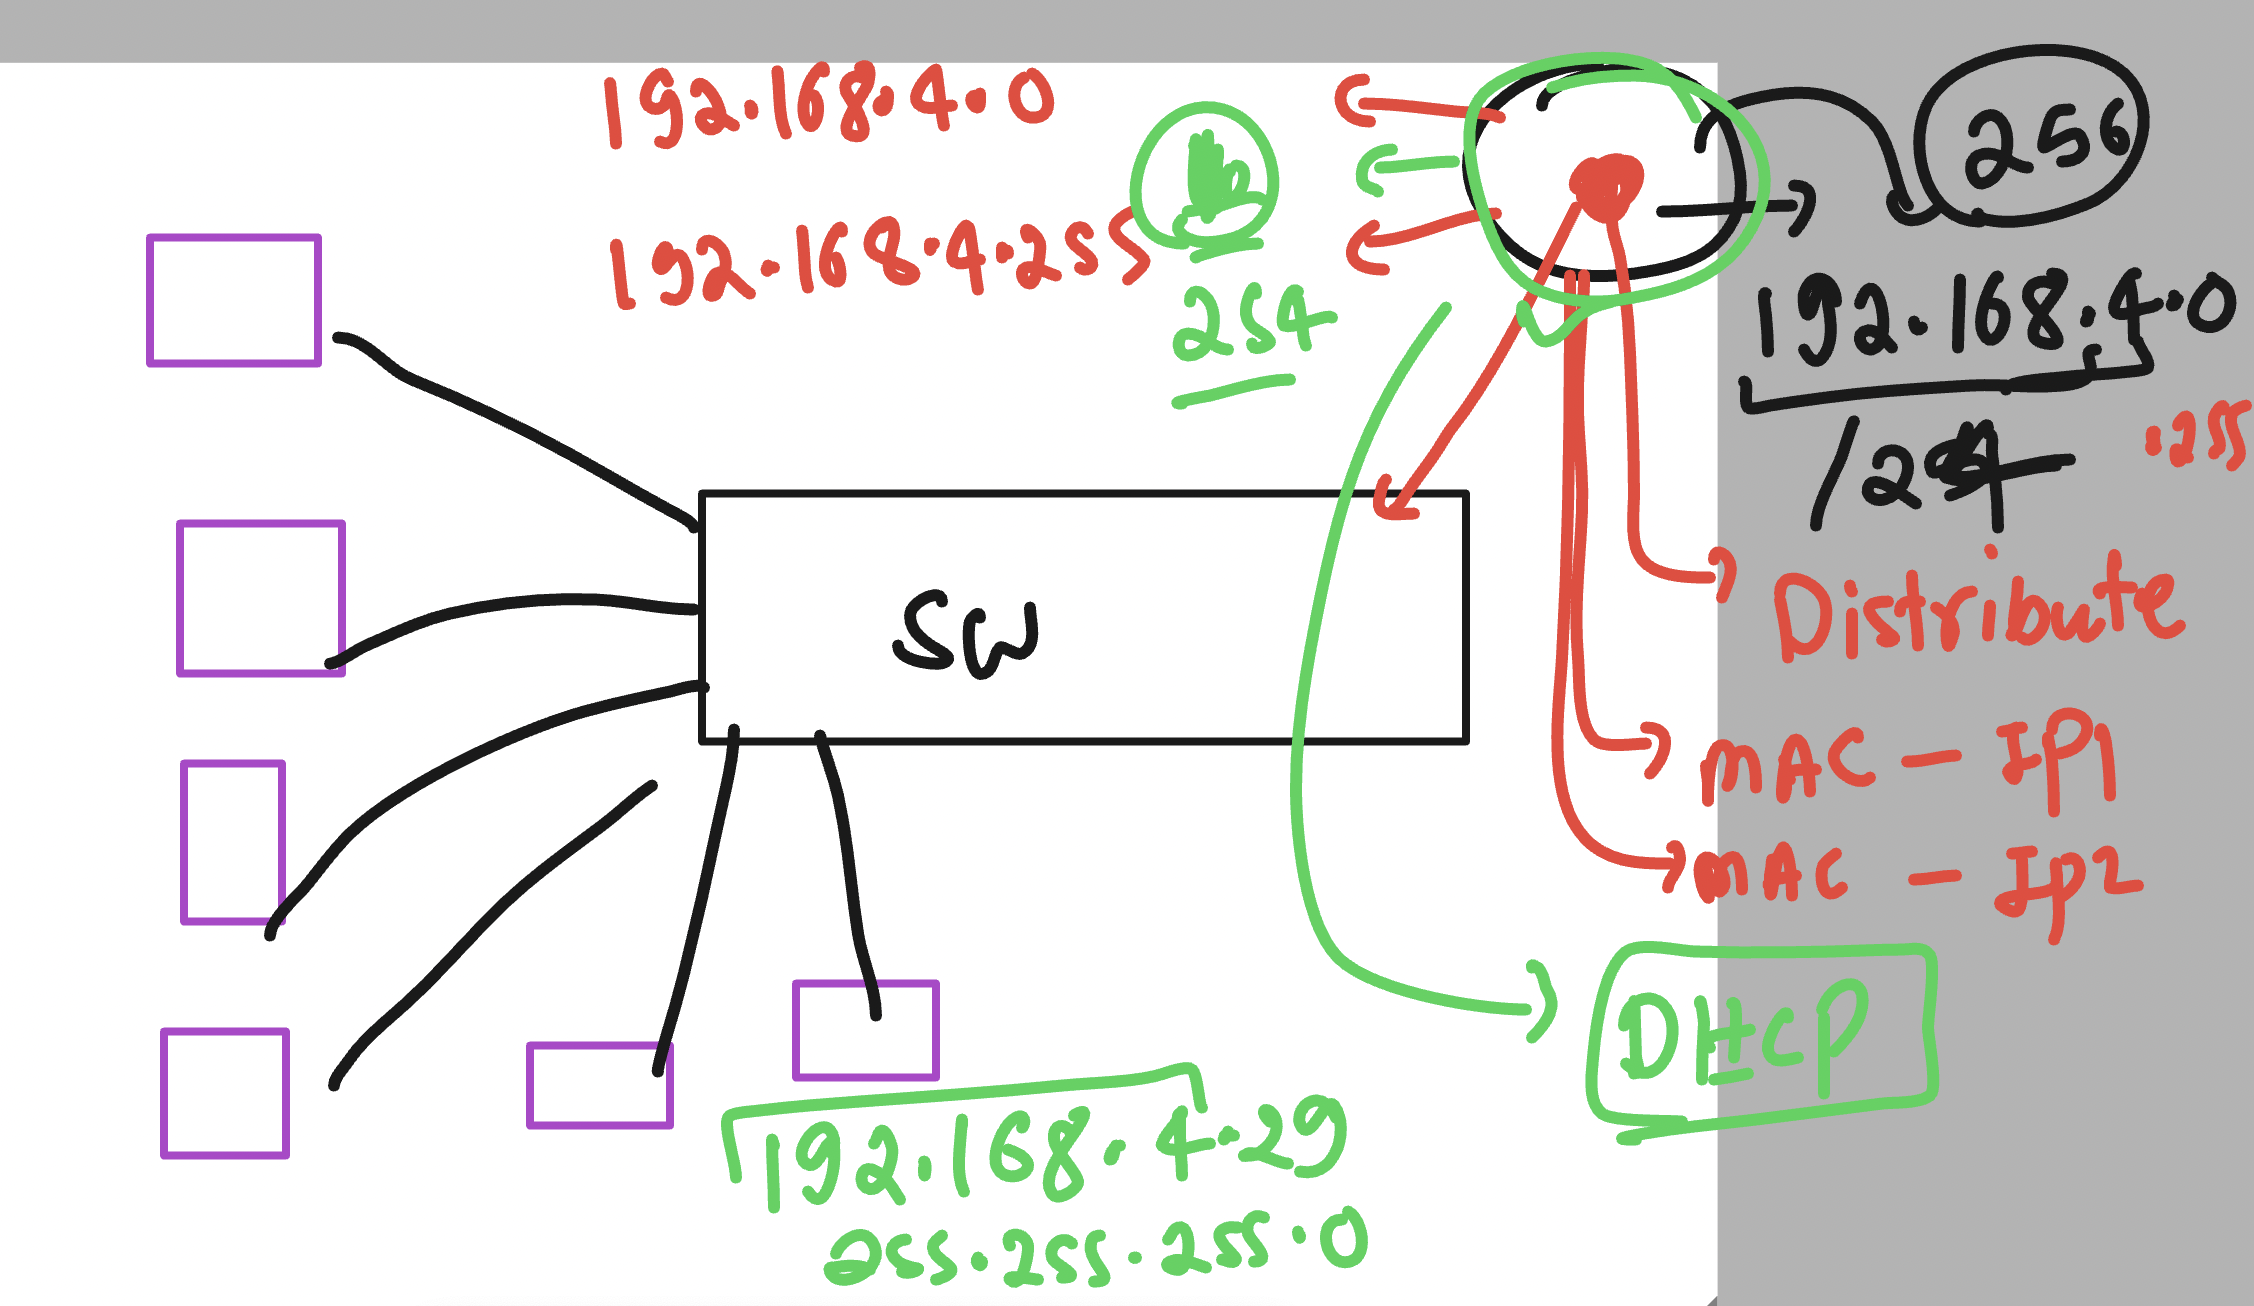 192.168.4.0
256
192.168.4.255
254
192.168.4.0
/24
.255
SW
Distribute
MAC - IP1
MAC - Ip2
DHCP
192.168.4.29
255.255.255.0